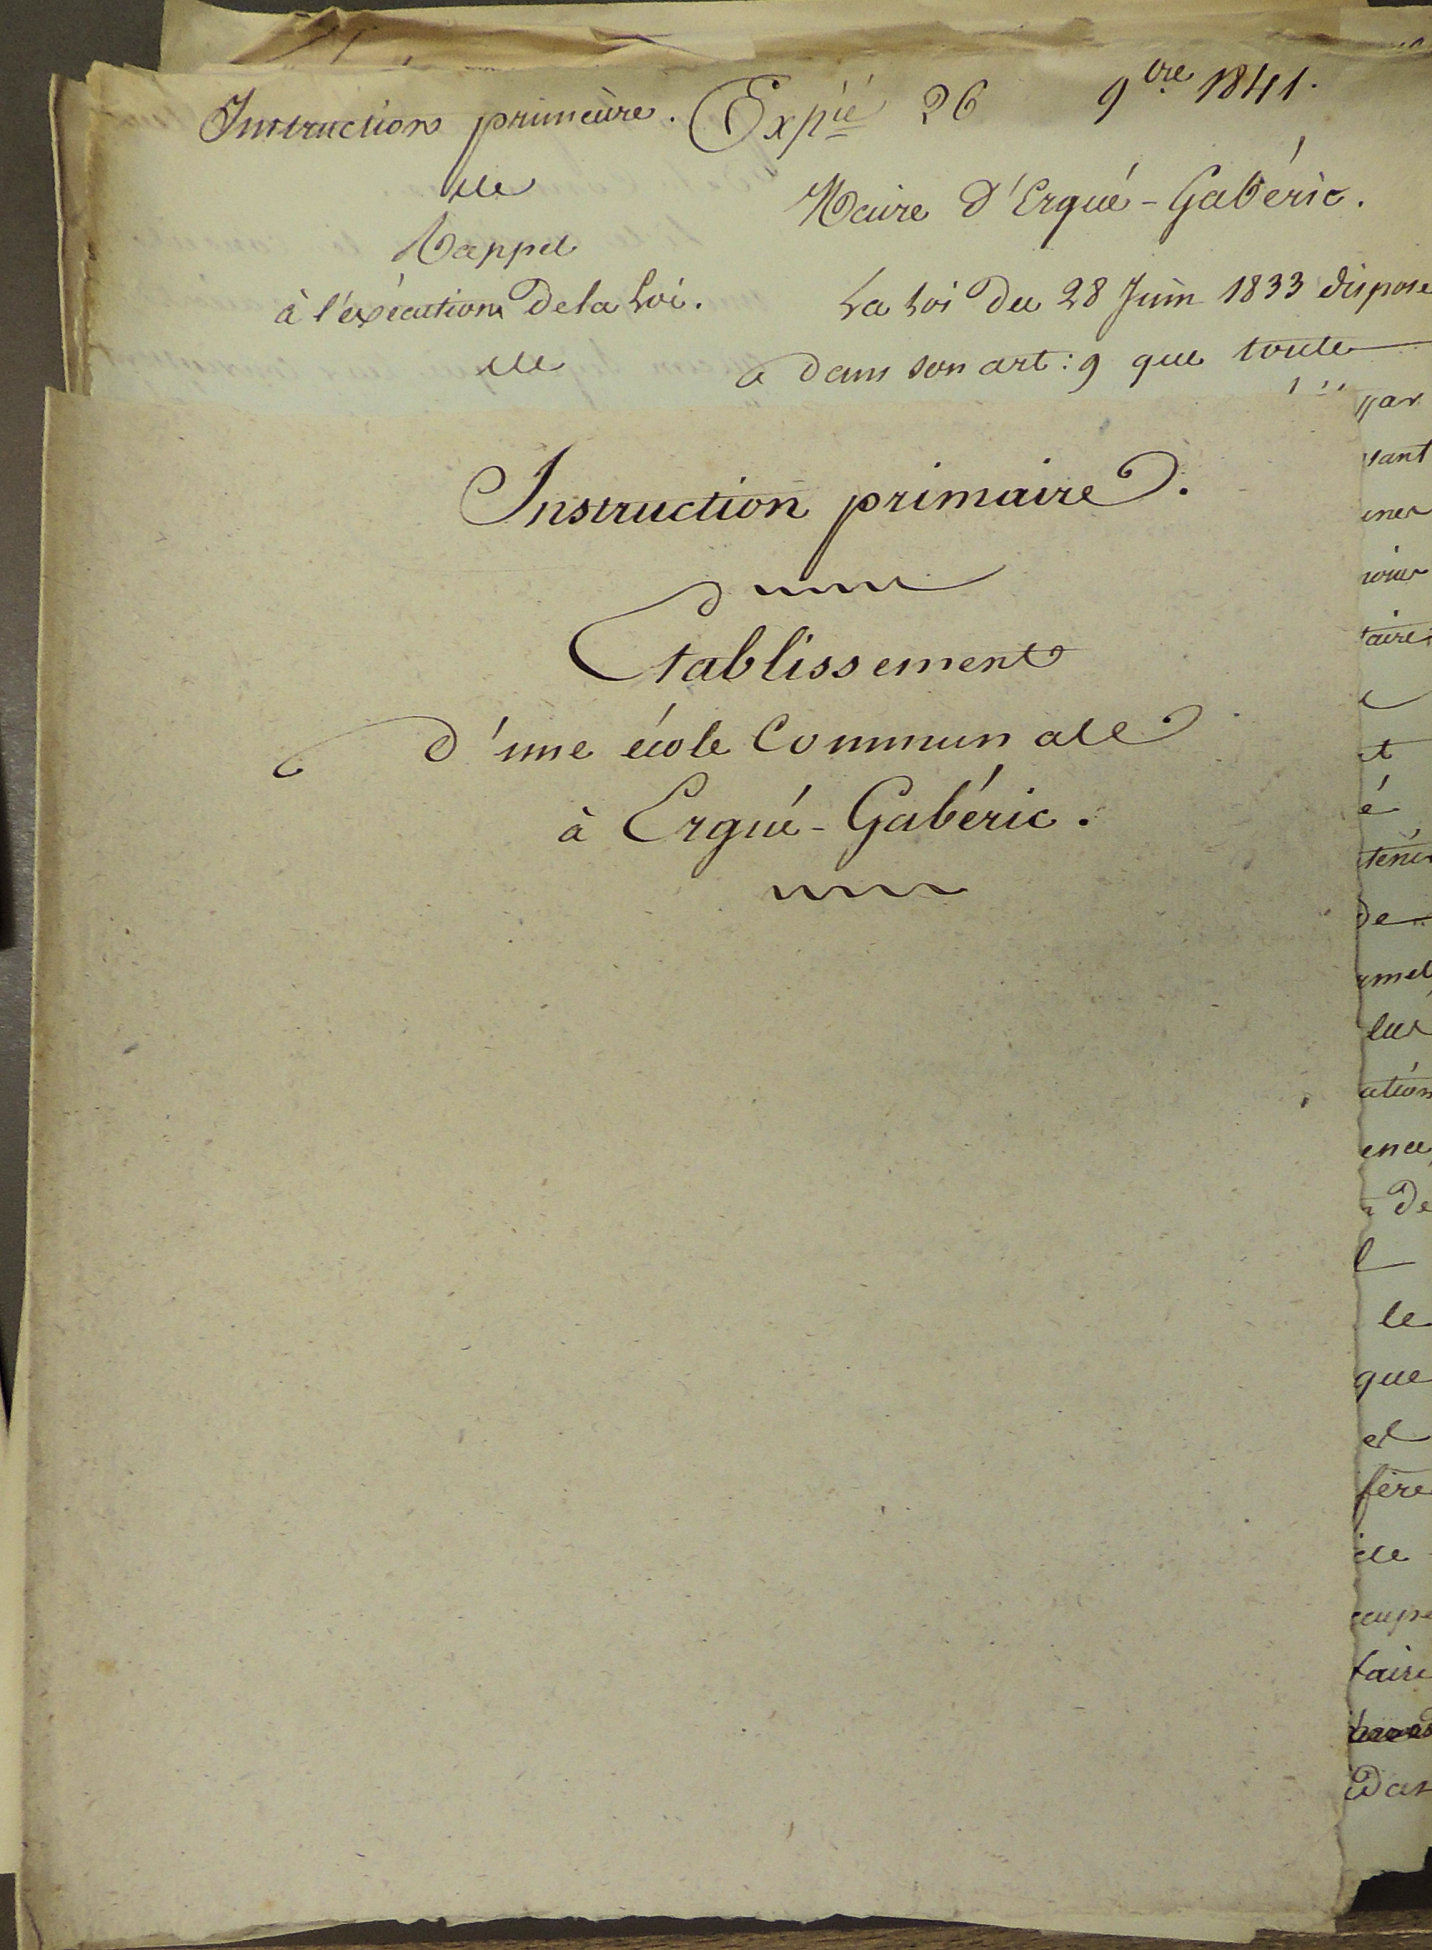 Instruction primaire. Expié 26 9bre 1841.
Maire d'Ergué-Gabéric.
Rappel
à l'exécution de la Loi.
La Loi du 28 Juin 1833 dispose
dans son art: 9 que toute
Instruction primaire.
Etablissement
d'une école Communale
à Ergué-Gabéric.
par
sant
taire
et
é
tenir
de
ation
de
le
que
et
faire